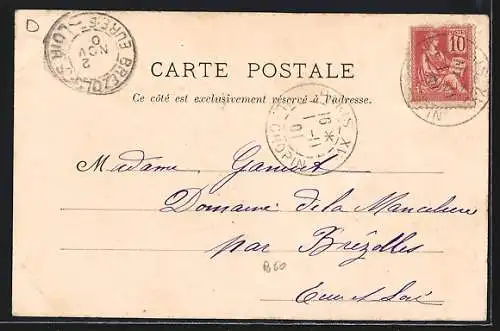 BREZOLLES
EURE-ET-LOIR
2
NOV
0
CARTE POSTALE
Ce côté est exclusivement réservé à l'adresse.
POSTES
10
PARIS-XVI
16 *
1-11
01
R. CHOPIN
Madame
Domaine de la Mancelière
par Brézolles
Eure et Loir
B60